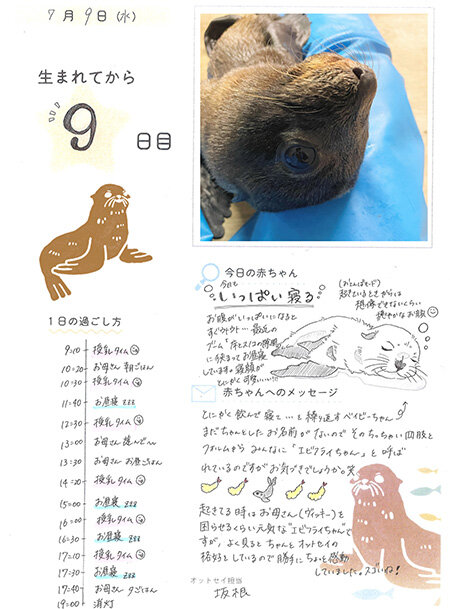 7月9日(水)
生まれてから
9
日目
1日の過ごし方
9:10 授乳タイム
10:20 お母さん 朝ごはん
10:30 授乳タイム
11:40 お昼寝 zzz
12:30 授乳タイム
13:00 お母さん
13:30 お母さん お昼ごはん
14:20 授乳タイム
15:00 お昼寝 zzz
16:00 授乳タイム
16:30 お昼寝 zzz
17:10 授乳タイム
17:30 お昼寝 zzz
17:40 お母さん 夕ごはん
19:00 消灯
今日の赤ちゃん
今日も
いっぱい寝る
お腹がいっぱいになると
すぐウトウト… 最近の
ブーム
に挟まってお昼寝
しています。寝顔が
とにかく可愛い…!!
起きているときからは
想像できないくらい
穏やかなお顔
赤ちゃんへのメッセージ
とにかく飲んで寝て…と繰り返すベイビーちゃん
まだちゃんとしたお名前がないので そのちっちゃい四肢と
フォルムから みんなに "エビフライちゃん"と呼ば
れているのですがお気づきでしょうか。笑
起きてる時はお母さん(ヴィッキー)を
困らせるくらい元気な"エビフライちゃん"で
すが、よく見るとちゃんとオットセイの
格好をしているので勝手にちょっと感動
していました。スゴいね!
オットセイ担当
坂根